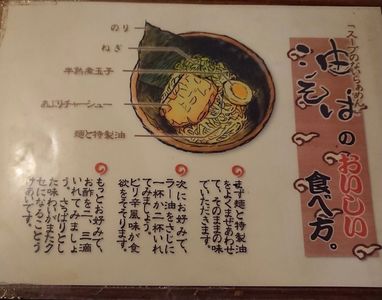 「スープのないらぁめん」
油そば
の
おいしい
食べ方。
のり
ねぎ
半熟煮玉子
あぶりチャーシュー
麺と特製油
まず麺と特製油
をよくまぜあわせ
て、そのままの味
でいただきます。
次にお好みで、
ラー油をさじに
一杯か二杯いれ
てみましょう。
ピリ辛風味が食
欲をそそります。
もっとお好みで、
お酢を二、三滴
いれてみましょ
う。さっぱりとし
た味わいがまたク
セになることう
けあいです。